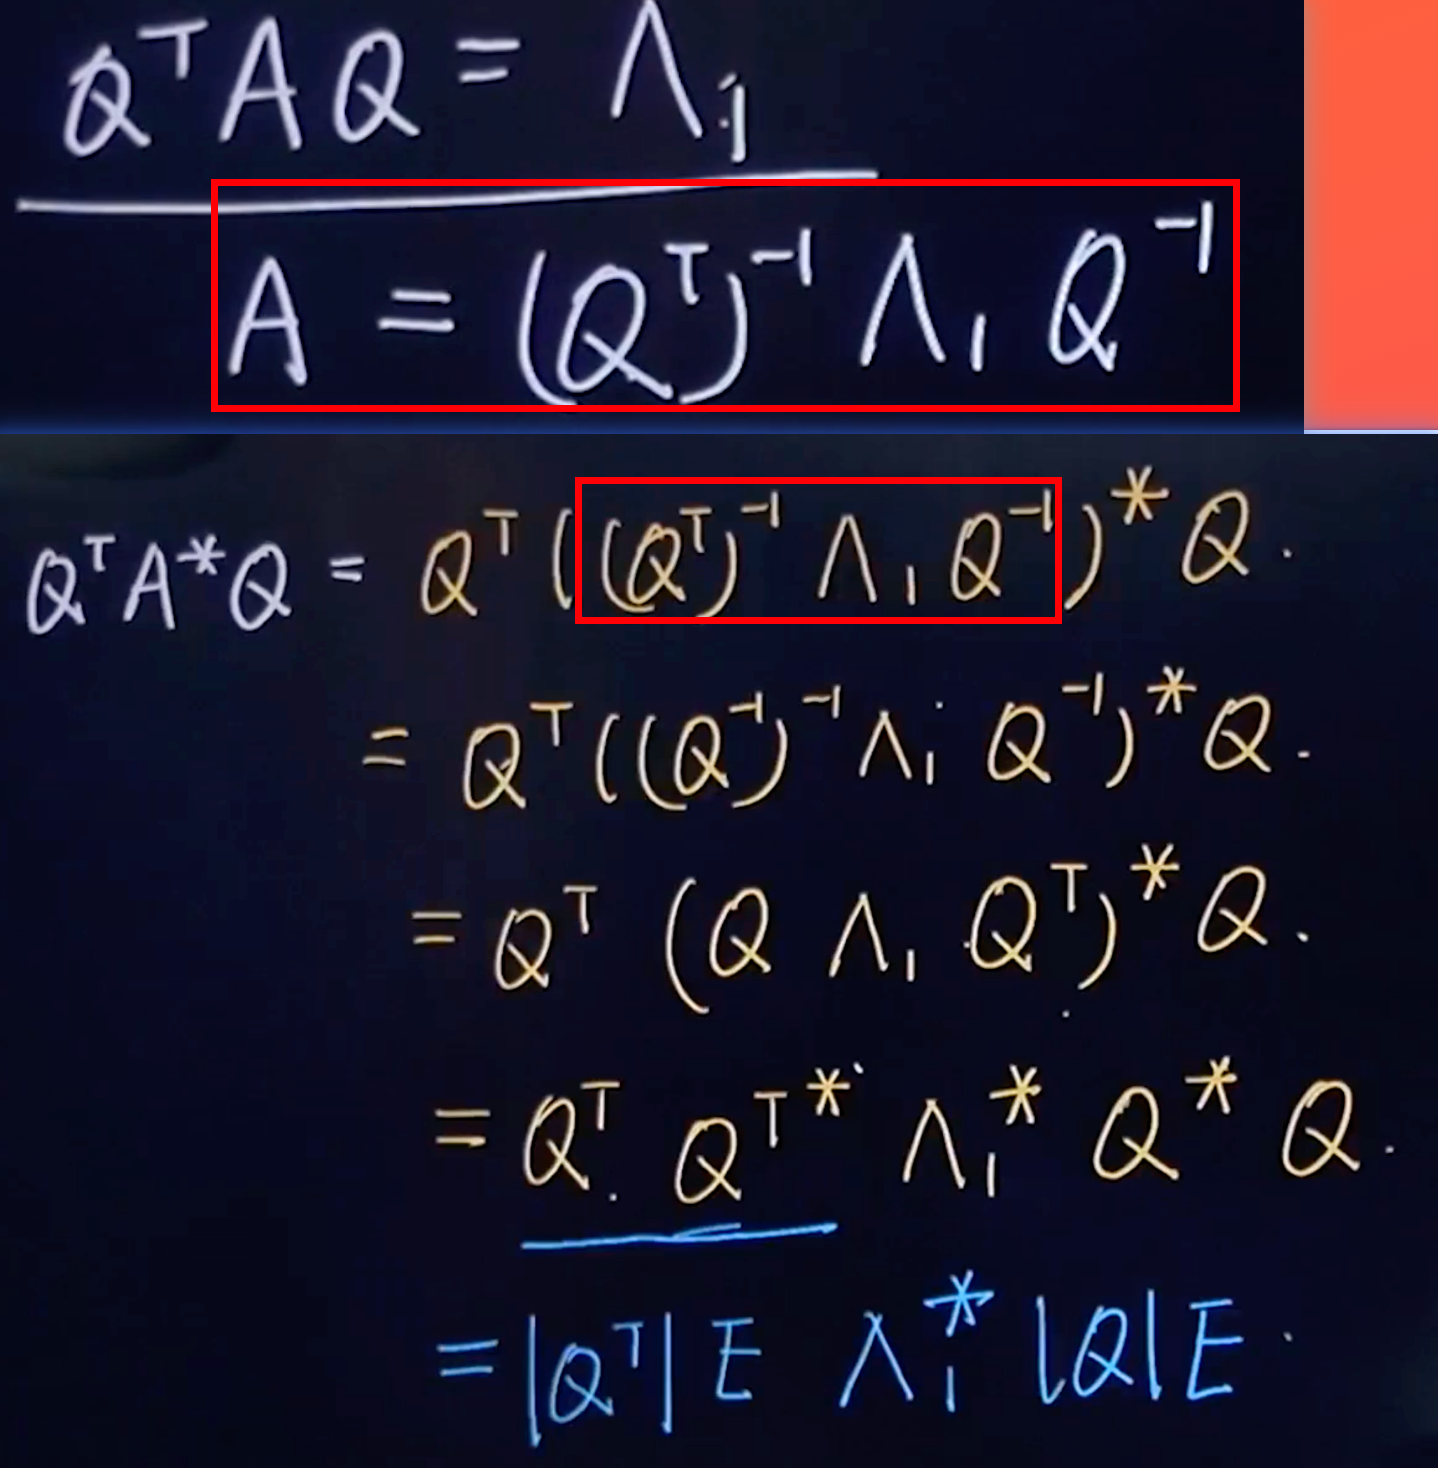 Qᵀ A Q = Λ₁
A = (Qᵀ)⁻¹ Λ₁ Q⁻¹
QᵀA*Q = Qᵀ((Qᵀ)⁻¹ Λ₁ Q⁻¹)* Q.
= Qᵀ((Q⁻¹)⁻¹ Λ₁ Q⁻¹)* Q.
= Qᵀ (Q Λ₁ Qᵀ)* Q.
= Qᵀ. Qᵀ* Λ₁* Q* Q.
= |Qᵀ| E Λ₁* |Q| E.